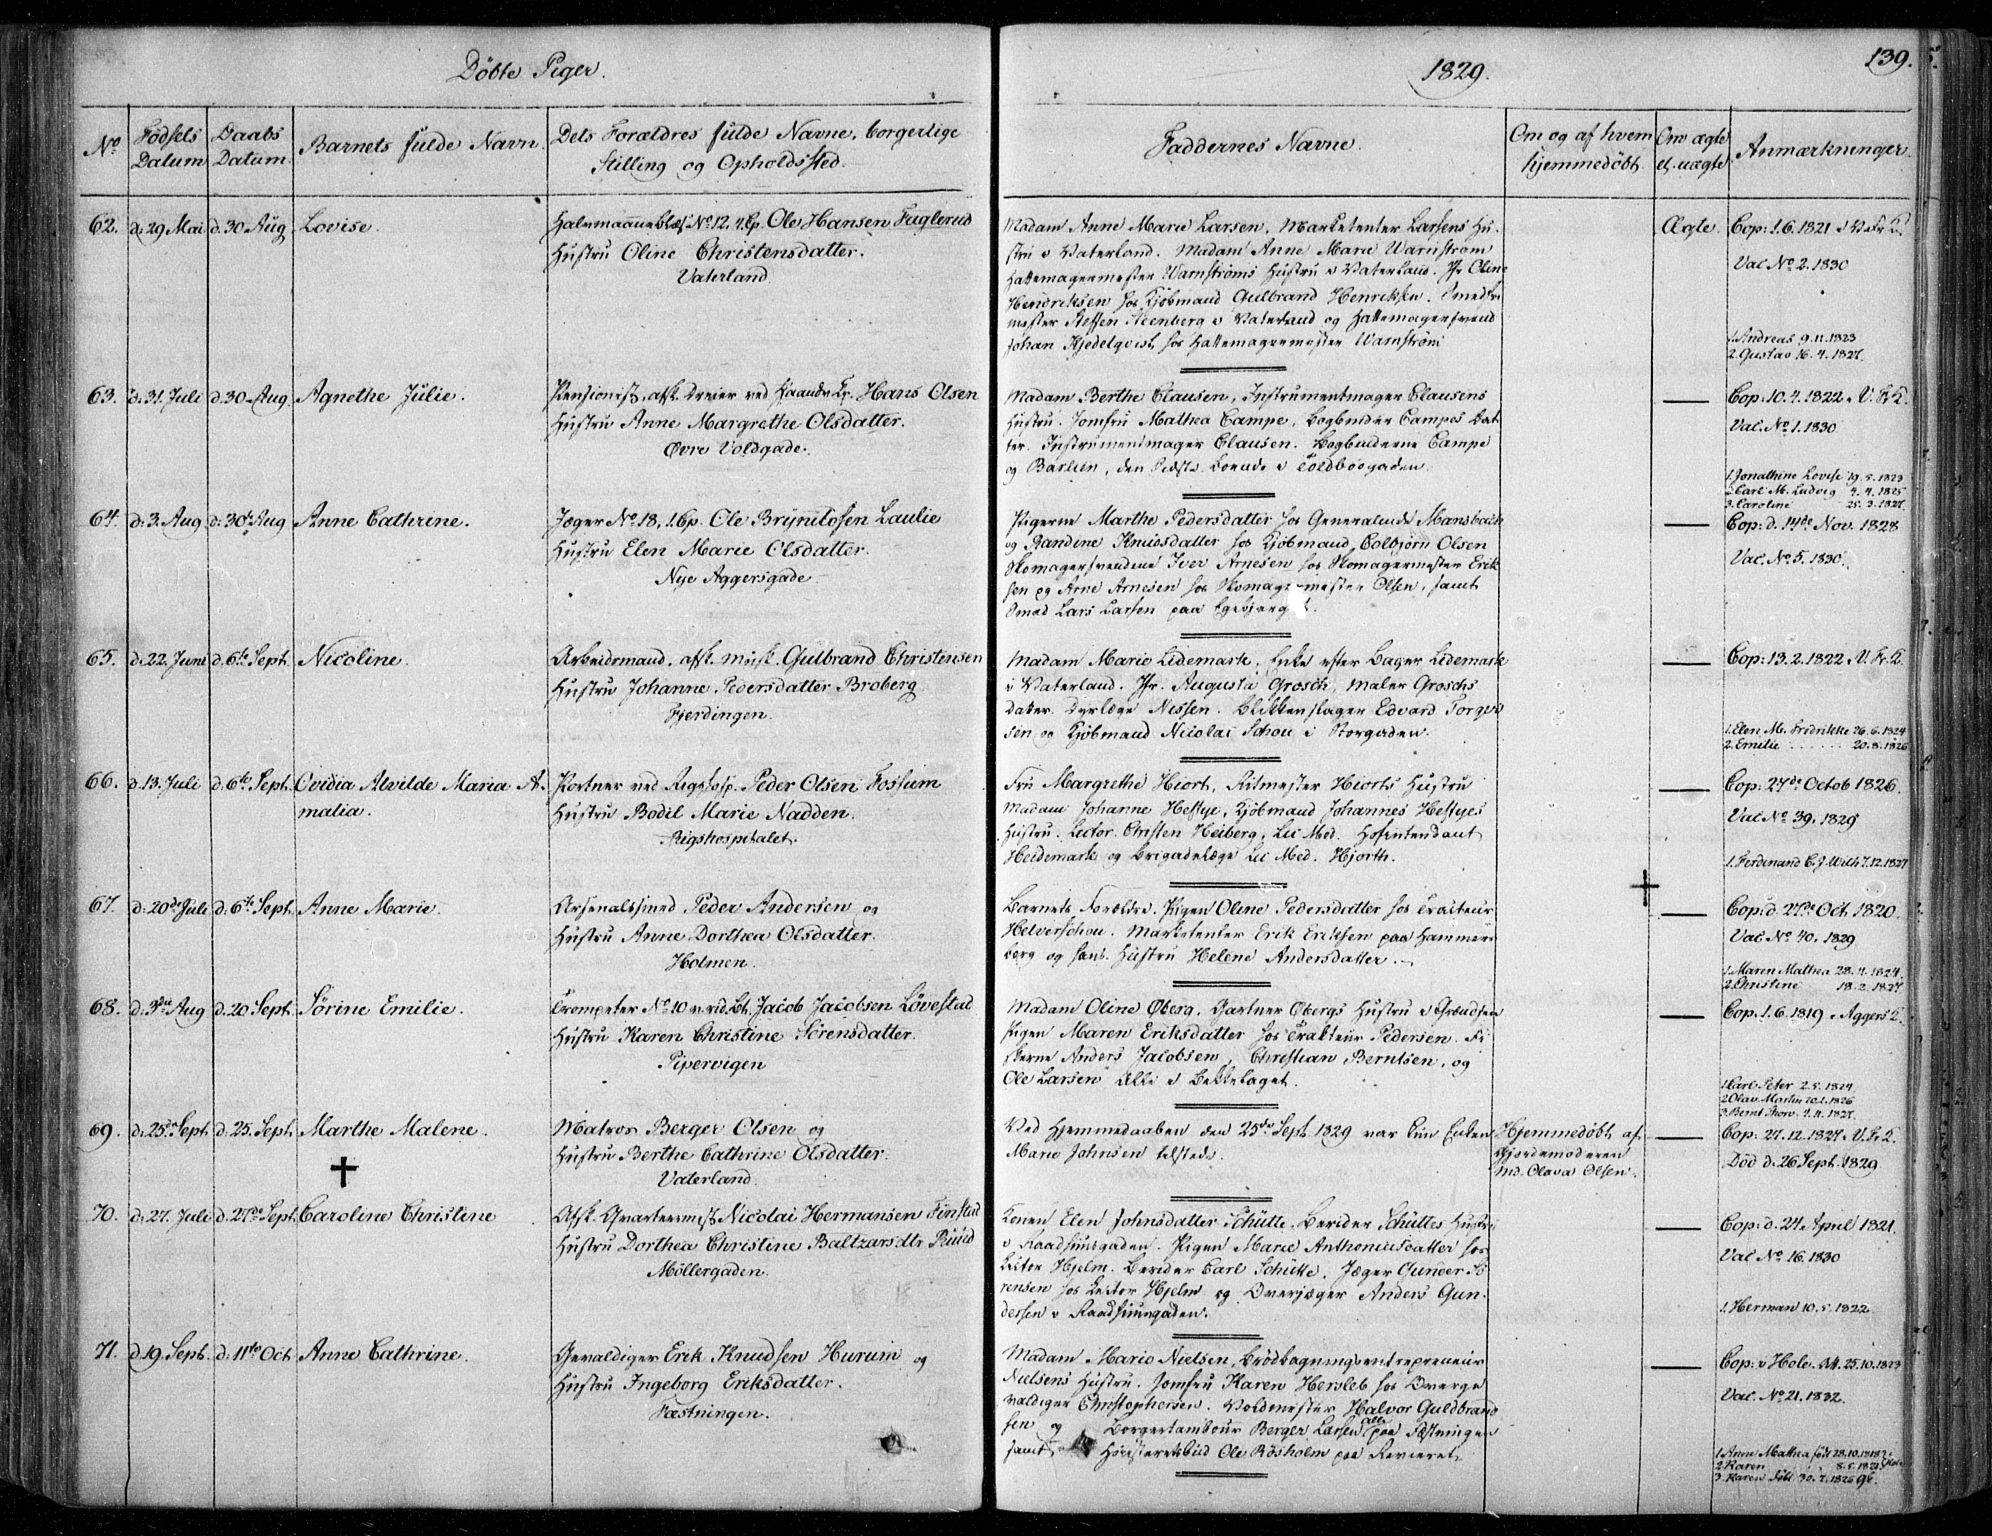 Döbte Piger.
1829.
139.
No
Födsels Datum
Daabs Datum
Barnets fulde Navn
Dets Forældres fulde Navne, borgerlige
Stilling og Opholdssted.
Faddernes Navne.
Om og af hvem hjemmedöbt
Om ægte el. uægte
Anmærkninger.
62. d. 29 Mai d. 30 Aug Lovise.
No 12, 4 Cp. Ole Hansen Fuglerud
Hustru Oline Christensdatter.
Vaterland
Madam Anne Marie Larsen, Marketenter Larsens Hu-
stru i Vaterland. Madam Anne Marie Warnström
Hattemagermester Warnströms Hustru i Vaterland. Jfr Oline
Hendriksen hos Kjöbmand Gulbrand Henriksen.
mester Steffen Steenberg i Vaterland og Hattemagersvend
Johan Kjedelqvist hos Hattemagermester Warnström
Ægte
Cop: 1.6.1821 i V. Fr. K.
Vac No 2. 1830
1. Andreas 9.11.1823
2. Gustav 16.4.1827.
63. d. 31. Juli d. 30 Aug Agnethe Julie.
Pensionist, afsk. Hans Olsen
Hustru Anne Margrethe Olsdatter.
Övre Voldgade.
Madam Berthe Clausen, Instrumentmager Clausens
Hustru. Jomfru Mathea Campe, Bogbinder Campes Dat-
ter. Instrumentmager Clausen. Bogbinderne Campe
og Barlien, den Sidste boende i Toldbodgaden.
Cop: 10.4.1822 i V. Fr. K.
Vac. No 1. 1830
1. Jonathine Lovise 19.5.1823
2. Carl M. Ludvig 4.4.1825
3. Caroline 25.3.1827.
64. d. 3. Aug d. 30 Aug Anne Cathrine.
Jæger No 18, 1. Cp. Ole Brynilosen Laulie
Hustru Elen Marie Olsdatter.
Nye Aggersgade.
Pigerne Marthe Pedersdatter hos Generalinde Mansbach
og Randine Knudsdatter hos Kjöbmand Colbjörn Olsen
Skomagersvendene Iver Arnesen hos Skomagermester Erik
sen og Arne Arnesen hos mester Olsen, samt
Smed Lars Larsen paa
Cop: d. 14de Nov. 1828
Vac. No 5. 1830.
65. d. 22. Juni d. 6te Sept. Nicoline.
Arbeidsmand, afsk. Musk. Gulbrand Christensen
Hustru Johanne Pedersdatter Broberg
Fjerdingen.
Madam Marie Lidemark, Enke efter Bager Lidemark
i Vaterland. Jfr. Augusta Grosch, Maler Groschs
Datter. Dyrlæge Nissen. Blikkenslager Edvard Torger
sen og Kjöbmand Nicolai Schou i Storgaden.
Cop: 13.2.1822 i V. Fr. K.
1. Elen M. Fredrikke 26.6.1824
2. Emilie 20.8.1826
66. d. 13. Juli d. 6te Sept. Ovidia Alvilde Maria A-
malia.
Portner ved Rigshosp. Peder Olsen Fossum
Hustru Bodil Marie Nadden.
Rigshospitalet.
Fru Margrethe Hiort, Ritmester Hiorts Hustru
Madam Johanne Heftye, Kjöbmand Johannes Heftyes
Hustru. Lector Christen Heiberg, Lic Med. Hofintendant
Heidemark og Brigadelæge Lic Med. Hjorth.
Cop: 27de Octob 1826.
Vac No 39. 1829
1. Ferdinand C. J. With 7.12.1827
67. d. 20de Juli d. 6te Sept. Anne Marie.
Arsenalssmed Peder Andersen og
Hustru Anne Dorthea Olsdatter.
Holmen.
Barnets Forældre. Pigen Oline Pedersdatter hos Tracteur
Helverschou. Marketenter Erik Eriksen paa Hammers
berg og hans Hustru Helene Andersdatter.
Cop: d. 27de Oct. 1820.
Vac No 40. 1829
1. Maren Mathea 28.4.1824.
2. Christine 18.2.1827
68. d. 3die Aug d. 20 Sept. Sörine Emilie.
Trompeter No 10 Jacob Jacobsen Lövestad
Hustru Karen Christine Sörensdatter.
Pipervigen
Madam Oline Öberg, Gartner Öbergs Hustru i Grændsen
Pigen Maren Eriksdatter hos Trakteur Pedersen. Fi
skerne Anders Jacobsen, Christian Berntsen, og
Ole Larsen Alle i Bekkelaget.
Cop. 1.6.1819 i Aggers K.
1. Carl Peter 2.5.1824
2. Olav Martin 20.1.1826
3. Bernt Thorv. 9.11.1827.
69. d. 25 Sept. d. 25. Sept. Marthe Malene.
Matros Berger Olsen og
Hustru Berthe Cathrine Olsdatter.
Vaterland.
Ved Hjemmedaaben den 25de Sept 1829 var kun Enken
Marie Johnsen tilstede.
Hjemmedöbt af
Gjordemoderen
Md. Olava Olsen.
Cop: 27.12.1827 i V. Fr. K.
Död d. 26 Sept. 1829
70. d. 27. Juli d. 27de Sept. Caroline Christine
Afsk. Qvarteermest Nicolai Hermansen Finstad
Hustru Dorthea Christine Baltzarsdtr Ruud
Möllergaden.
Konen Elen Johnsdatter Schütte, Berider Schüttes Hustru
i Raadhuusgaden. Pigen Marie Anthoniusdatter hos
Lector Hjelm. Berider Carl Schütte. Jæger Gunder Sö-
rensen hos Lector Hjelm og Overjæger Anders Gun-
dersen i Raadhuusgaden.
Cop: d. 24 April 1821.
Vac No 16. 1830
1. Herman 10.5.1822.
71. d. 19. Sept. d. 11te Oct Anne Cathrine.
Gevaldiger Erik Knudsen Hurum og
Hustru Ingeborg Eriksdatter.
Fæstningen.
Madam Marie Nielsen, Brödbagningsentrepreneur
Nielsens Hustru. Jomfru Karen Hersleb hos Overge
valdiger Christophersen. Voldmester Halvor Guldbrand
sen og Borgertambour Berger Larsen alle paa Fæstningen
samt Ole Rösholm paa Revieret.
Cop: i Hole 25.10.1823
Vac. No 21. 1832.
1. Anne Mathea födt 28.10.1818
2. Karen 8.5.1821
3. Karen födt 30.7.1826